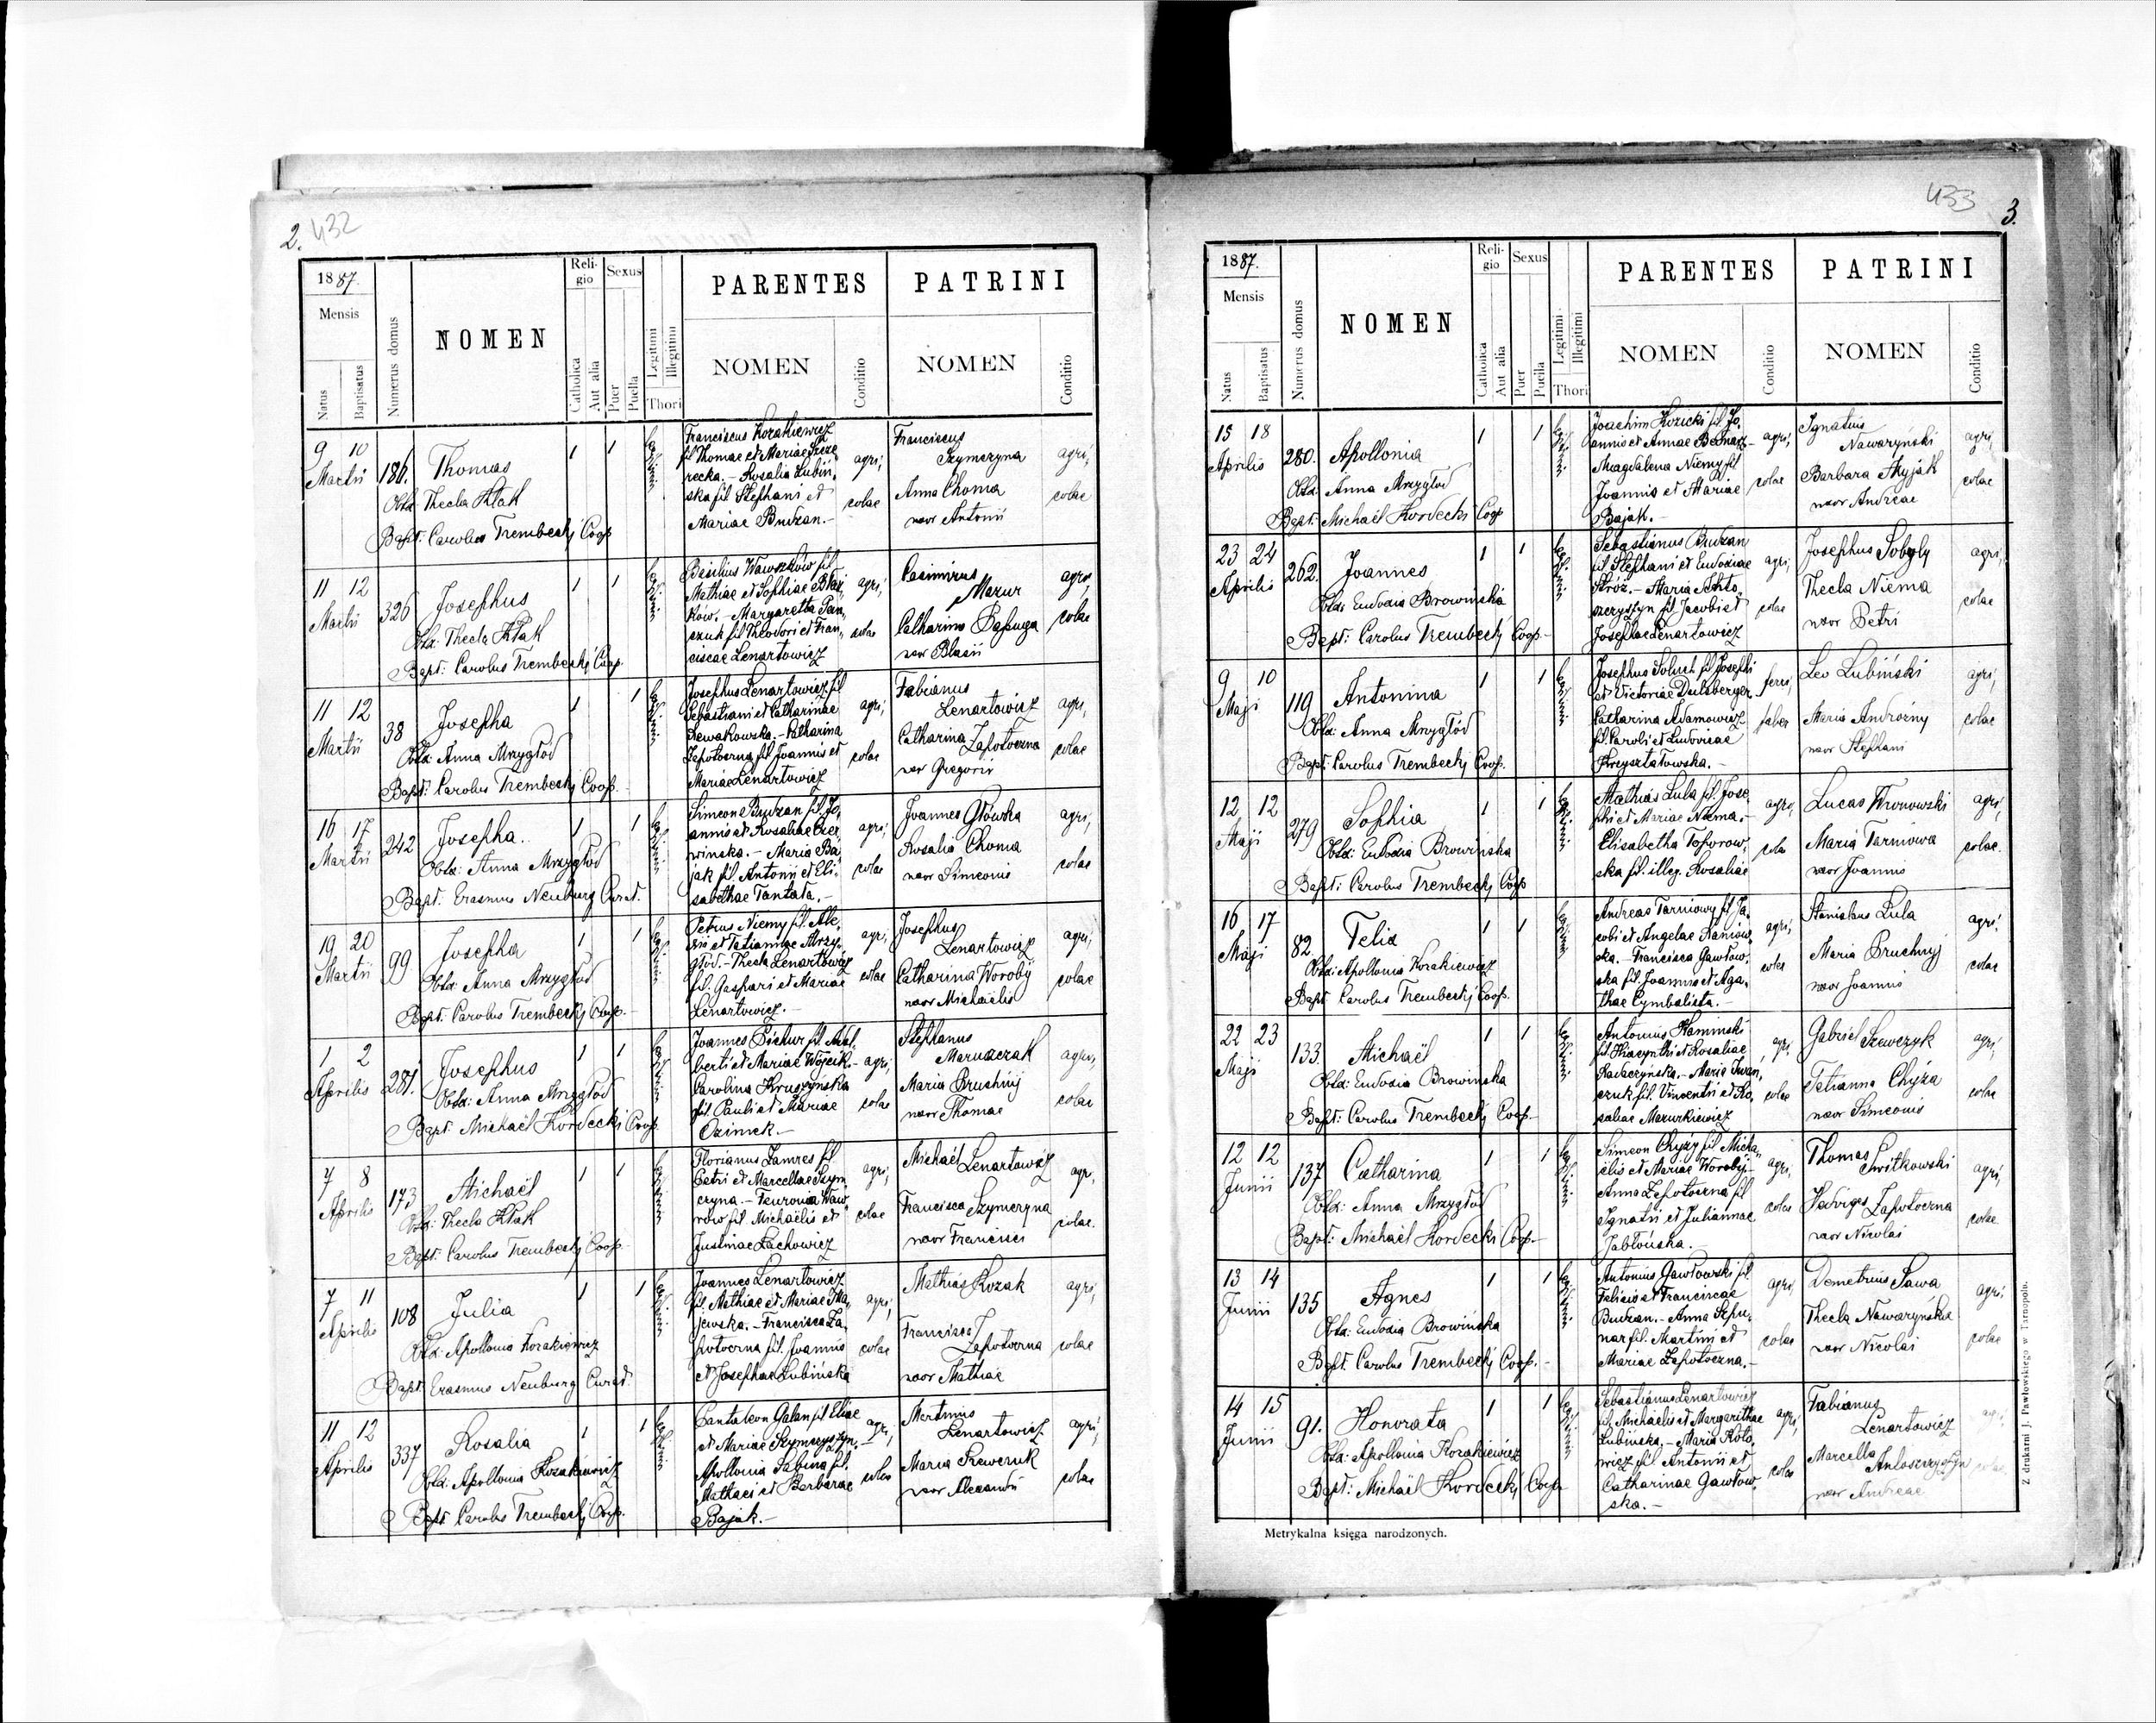 2. 432
1887.
Mensis
Natus
Baptisatus
Numerus domus
NOMEN
Religio
Catholica
Aut alia
Sexus
Puer
Puella
Legitimi
Illegitimi
Thori
PARENTES
NOMEN
Conditio
PATRINI
NOMEN
Conditio
9 10
Martii
186.
Thomas
Obst: Thecla Kłak
Bapt: Carolus Trembecký Coop
1 1
Franciscus Kozakiewicz
fil Thomae et Mariae
Rosalia Lubiń-
ska fil Stephani et
Mariae Budzan.-
agri,
colae
Franciscus
Szymczyna
Anna Choma
uxor Antonii
agri,
colae
11 12
Martii
326
Josephus
Obst: Thecla Kłak
Bapt: Carolus Trembecký Coop.
1 1
Basilius Wawrzków fil
Mathiae et Sophiae
ków. - Margaretta Pan-
czuk fil Theodori et Fran-
ciscae Lenartowicz
agri,
colae
Casimirus
Mazur
Catharina Papuga
uxor Blasii
agri,
colae
11 12
Martii
38
Josepha
Obst: Anna Mrzygłód
Bapt: Carolus Trembecký Coop.
1 1
Josephus Lenartowicz fil
Sebastiani et Catharinae
Dewakowska. - Catharina
Zapotoczna fil Joannis et
Mariae Lenartowicz
agri,
colae
Fabianus
Lenartowicz
Catharina Zapotoczna
uxor Gregorii
agri,
colae
16 17
Martii
242
Josepha.
Obst: Anna Mrzygłód
Bapt: Erasmus Neuburg Curat.
1 1
Simeone Budzan fil. Jo-
annis et Rosaliae Czer-
winska. - Maria Ba-
jak fil. Antonii et Eli-
sabethae Tantała.-
agri,
colae
Joannes Główka
Rosalia Choma
uxor Simeonis
agri,
colae
19 20
Martii
99
Josepha
Obst: Anna Mrzygłód
Bapt: Carolus Trembecký Coop.
1 1
Petrus Niemy fil. Ale-
xii et Tatiannae Mrzy-
głód. - Thecla Lenartowicz
fil. Gaspari et Mariae
Lenartowicz.-
agri,
colae
Josephus
Lenartowicz
Catharina Woroby
uxor Michaëlis
agri,
colae
1 2
Aprilis
281.
Josephus
Obst: Anna Mrzygłód
Bapt. Michaël Kordecki Coop.
1 1
Joannes Pichur fil Adal-
berti et Mariae Wójcik.-
Carolina Kruszyńska
fil. Pauli et Mariae
Ozimek.-
agri,
colae
Stephanus
Maruszczak
Maria Pruchnij
uxor Thomae
agri,
colae
7 8
Aprilis
173
Michaël
Obst: Thecla Kłak
Bapt: Carolus Trembecký Coop.
1 1
Florianus Zamres fil
Petri et Marcellae Szym-
czyna. - Feuronia Waw-
rów fil Michaëlis et
Justinae Lachowicz
agri,
colae
Michaël Lenartowicz
Francisca Szymczyna
uxor Francisci
agri,
colae.
7 11
Aprilis
108
Julia
Obst: Apollonia Kozakiewicz
Bapt: Erasmus Neuburg Curat.
1 1
Joannes Lenartowicz
fil. Mathiae et Mariae Ma-
jewska. - Francisca Za-
potoczna fil. Joannis
et Josephae Lubińska
agri,
colae
Mathias Kozak
Francisca
Zapotoczna
uxor Mathiae
agri,
colae
11 12
Aprilis
337
Rosalia
Obst: Apollonia Kozakiewicz
Bapt: Carolus Trembecký Coop.
1 1
Pantaleon Galan fil Eliae
et Mariae Szymczyszyn.-
Apollonia Sabina fil.
Mathaei et Barbarae
Bajak.-
agri,
colae
Martinus
Lenartowicz
Maria Szewczuk
uxor Alexandri
agri,
colae
433 3.
1887.
Mensis
Natus
Baptisatus
Numerus domus
NOMEN
Religio
Catholica
Aut alia
Sexus
Puer
Puella
Legitimi
Illegitimi
Thori
PARENTES
NOMEN
Conditio
PATRINI
NOMEN
Conditio
15 18
Aprilis
280.
Apollonia
Obst: Anna Mrzygłód
Bapt: Michaël Kordecki Coop
1 1
Joachim Kozicki fil. Jo-
annis et Annae Bednarz-
Magdalena Niemy fil
Joannis et Mariae
Bajak.-
agri,
colae
Ignatius
Nawaryński
Barbara
uxor Andreae
agri,
colae
23 24
Aprilis
262.
Joannes
Obst: Eudoxia Browińska
Bapt: Carolus Trembecký Coop.-
1 1
Sebastianus Budzan
fil Stephani et Eudoxiae
Stróz. - Maria Anto-
szczyszyn fil Jacobi et
Josephae Lenartowicz
agri,
colae
Josephus Soboly
Thecla Niema
uxor Petri
agri,
colae
9 10
Maji
119
Antonina
Obst: Anna Mrzygłód
Bapt: Carolus Trembecký Coop.
1 1
Josephus Soluch fil Josephi
et Victoriae Dulsberger
Catharina Adamowicz
fil. Caroli et Ludovicae
Krzyształowska.-
ferri,
faber
Leo Lubiński
Maria Androżny
uxor Stephani
agri,
colae
12 12
Maji
279
Sophia
Obst: Eudoxia Browińska
Bapt: Carolus Trembecký Coop
1 1
Mathias Lula fil. Jose-
phi et Mariae Niema.-
Elisabetha Toporow-
ska fil. illeg. Rosaliae
agri,
cola
Lucas Wronowski
Maria Tarniowa
uxor Joannis
agri,
colae.
16 17
Maji
82
Felix
Obst: Apollonia Kozakiewicz
Bapt: Carolus Trembecký Coop.
1 1
Andreas Tarniowy fil Ja-
cobi et Angelae Raniow-
ska. - Francisca Gawłow-
ska fil Joannis et Aga-
thae Cymbalista.-
agri,
colae
Stanislaus Lula
Maria Pruchnij
uxor Joannis
agri,
colae
22 23
Maji
133.
Michaël
Obst: Eudoxia Browinska
Bapt: Carolus Trembecký Coop.-
1 1
Antonius Kaminski
fil Hiacynthi et Rosaliae
Radaczyńska. - Maria Iwan-
czuk fil. Vincentii et Ro-
saliae Mazurkiewicz
agri,
colae
Gabriel Szewczyk
Tatianna Chyża
uxor Simeonis
agri,
colae
12 12
Junii
137
Catharina
Obst: Anna Mrzygłód
Bapt: Michaël Kordecki Coop.-
1 1
Simeon Chyży fil Micha-
ëlis et Mariae Woroby-
Anna Zapotoczna fil
Ignatii et Juliannae
Jabłońska.-
agri,
colae
Thomas
Switkowski
Hedviges Zapotoczna
uxor Nicolai
agri,
colae
13 14
Junii
135
Agnes
Obst: Eudoxia Browińska
Bapt. Carolus Trembecký Coop.-
1 1
Antonius Gawłowski fil.
Felicis et Franciscae
Budzan. - Anna Szpu-
nar fil. Martini et
Mariae Zapotoczna.-
agri,
colae
Demetrius Sawa
Thecla Nawaryńska
uxor Nicolai
agri,
colae
14 15
Junii
91.
Honorata
Obst: Apollonia Kozakiewicz
Bapt: Michaël Kordecký Coop.
1 1
Sebastianus Lenartowicz
fil. Michaëlis et Margarithae
Lubińska. - Maria Koto-
wicz fil Antonii et
Catharinae Gawłow-
ska.-
agri,
colae
Fabianus
Lenartowicz
Marcella
Antoszczyszyn
uxor Andreae
agri,
colae
Metrykalna księga narodzonych.
Z drukarni J. Pawłowskiego w Tarnopolu.